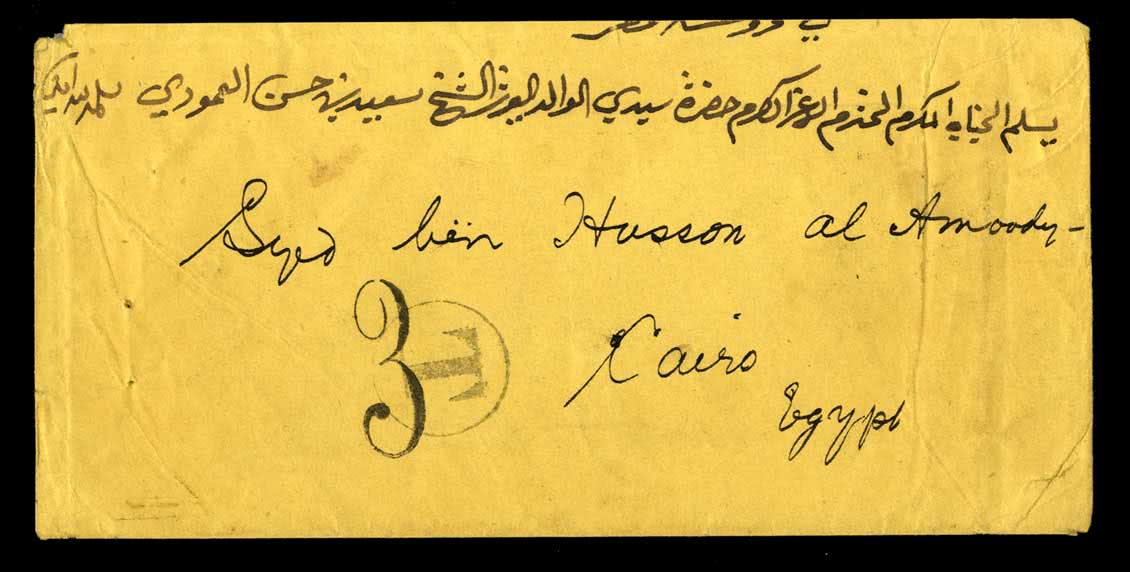 يسلم الجناب المكرم المحترم الاعز الاكرم حضرة سيدي الوالد العزيز الشيخ سعيد بن حسن العمودي سلمه الله امين
Syed bin Husson al Amoody-
3 T
Cairo
Egypt